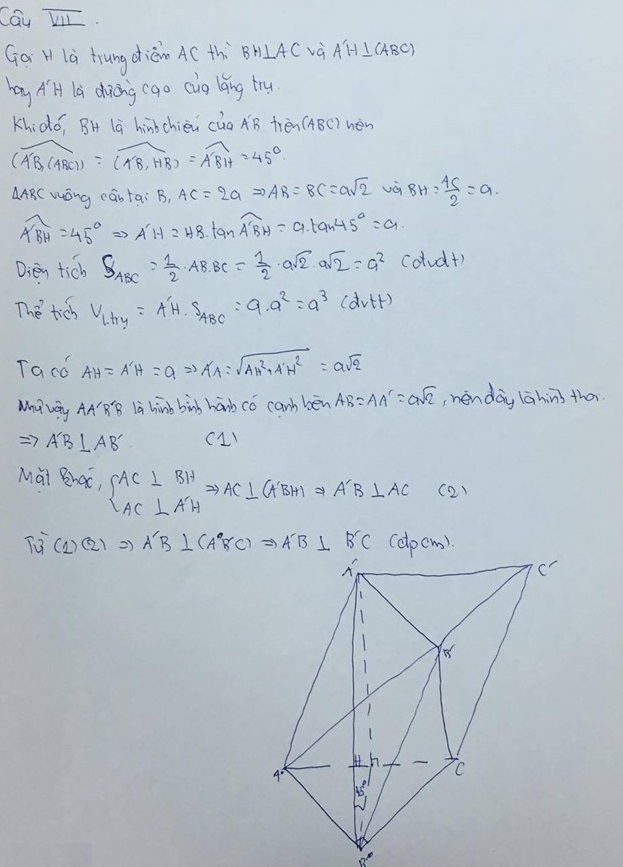 Câu VII.
Gọi H là trung điểm AC thì BH⊥AC và A'H⊥(ABC)
hay A'H là đường cao của lăng trụ.
Khi đó, BH là hình chiếu của A'B trên (ABC) nên
(A'B,(ABC)) = (A'B, HB) = A'BH = 45°.
ΔABC vuông cân tại B, AC = 2a ⇒ AB = BC = a√2 và BH = AC/2 = a.
A'BH = 45° ⇒ A'H = HB.tan A'BH = a.tan45° = a.
Diện tích S_ABC = 1/2 . AB.BC = 1/2 . a√2 . a√2 = a² (đvdt)
Thể tích V_l.trụ = A'H . S_ABC = a.a² = a³ (đvtt)
Ta có AH = A'H = a ⇒ A'A = √(AH²+A'H²) = a√2
Như vậy AA'B'B là hình bình hành có cạnh bên AB = AA' = a√2, nên đây là hình thoi.
⇒ A'B ⊥ AB' (1)
Mặt khác, { AC ⊥ BH
AC ⊥ A'H ⇒ AC ⊥ (A'BH) ⇒ A'B ⊥ AC (2)
Từ (1)(2) ⇒ A'B ⊥ (AB'C) ⇒ A'B ⊥ B'C (đpcm).
A' C'
B'
A H C
45°
B